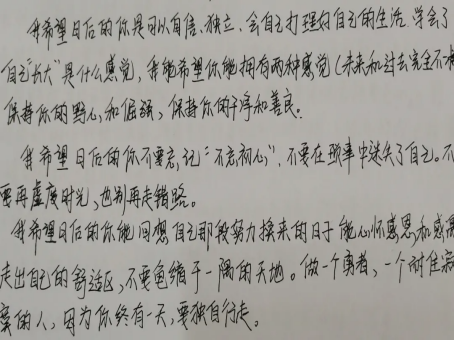 我希望日后的你是可以自信、独立、会自己打理好自己的生活 学会了
自己"长大"是什么感觉,我能希望你能拥有两种感觉(未来和过去完全不
保持你的野心,和倔强,保持你的干净和善良。
我希望日后的你不要忘记"不忘初心",不要在琐事中迷失了自己。不
要再虚度时光,也别再走错路。
我希望日后的你能回想自己那段努力换来的日子 能心怀感恩和感
走出自己的舒适区,不要龟缩于一隅的天地。做一个勇者,一个耐住寂
寞的人,因为你终有一天,要独自行走。